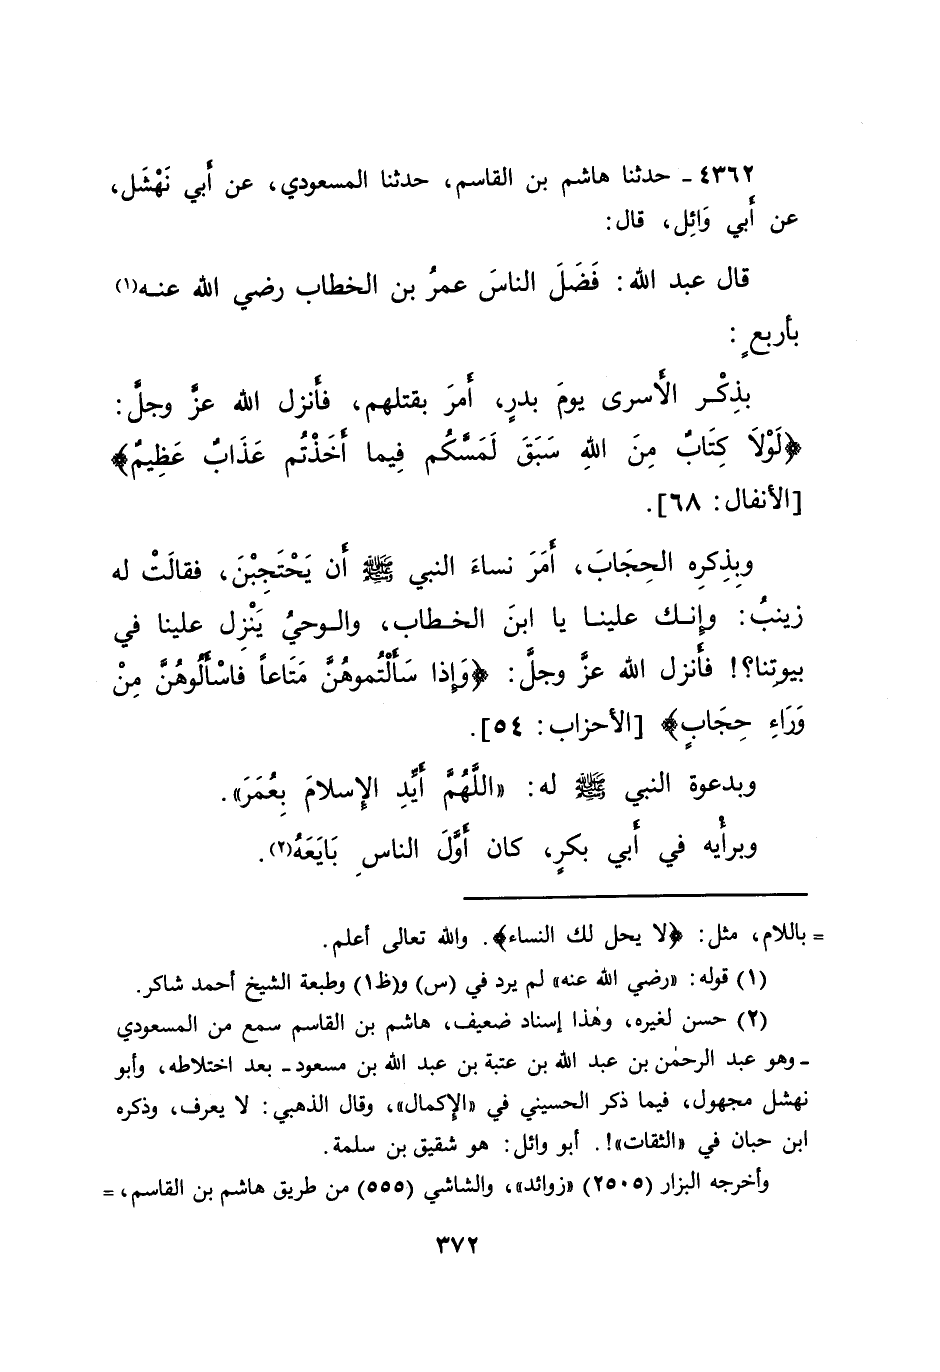 ٤٣٦٢ ـ حدثنا هاشم بن القاسم، حدثنا المسعودي، عن أَبي نَهْشَل،
عن أَبي وَائِل، قال:
قال عبد الله: فَضَلَ الناسَ عمرُ بن الخطاب رضي الله عنـه(١)
بأربعٍ:
بِذِكْـر الأَسرى يومَ بدرٍ، أَمرَ بقتلهم، فأَنزل الله عزَّ وجلَّ:
﴿لَوْلَا كِتَابٌ مِنَ اللهِ سَبَقَ لَمَسَّكُم فِيما أَخَذْتُم عَذَابٌ عَظِيمٌ﴾
[الأنفال: ٦٨].
وبِذِكرِه الحِجَابَ، أَمَرَ نساءَ النبي ﷺ أَن يَحْتَجِبْنَ، فقالَتْ له
زينبُ: وإِنـك علينـا يا ابنَ الخـطاب، والـوحيُ يَنْزِل علينا في
بيوتِنا؟! فأَنزل الله عزَّ وجلَّ: ﴿وَإِذا سَأَلْتُموهُنَّ مَتَاعاً فاسْأَلُوهُنَّ مِنْ
وَرَاءِ حِجَابٍ﴾ [الأحزاب: ٥٤].
وبدعوة النبي ﷺ له: «اللَّهُمَّ أَيِّدِ الإِسلامَ بِعُمَرَ».
وبرأْيه في أَبي بكرٍ، كان أَوَّلَ الناسِ بَايَعَهُ(٢).
= باللام، مثل: ﴿لا يحل لك النساء﴾. والله تعالى أعلم.
(١) قوله: «رضي الله عنه» لم يرد في (س) و(ظ١) وطبعة الشيخ أحمد شاكر.
(٢) حسن لغيره، وهٰذا إسناد ضعيف، هاشم بن القاسم سمع من المسعودي
ـ وهو عبد الرحمٰن بن عبد الله بن عتبة بن عبد الله بن مسعود ـ بعد اختلاطه، وأبو
نهشل مجهول، فيما ذكر الحسيني في «الإكمال»، وقال الذهبي: لا يعرف، وذكره
ابن حبان في «الثقات»!. أبو وائل: هو شقيق بن سلمة.
وأخرجه البزار (٢٥٠٥) «زوائد»، والشاشي (٥٥٥) من طريق هاشم بن القاسم، =
٣٧٢